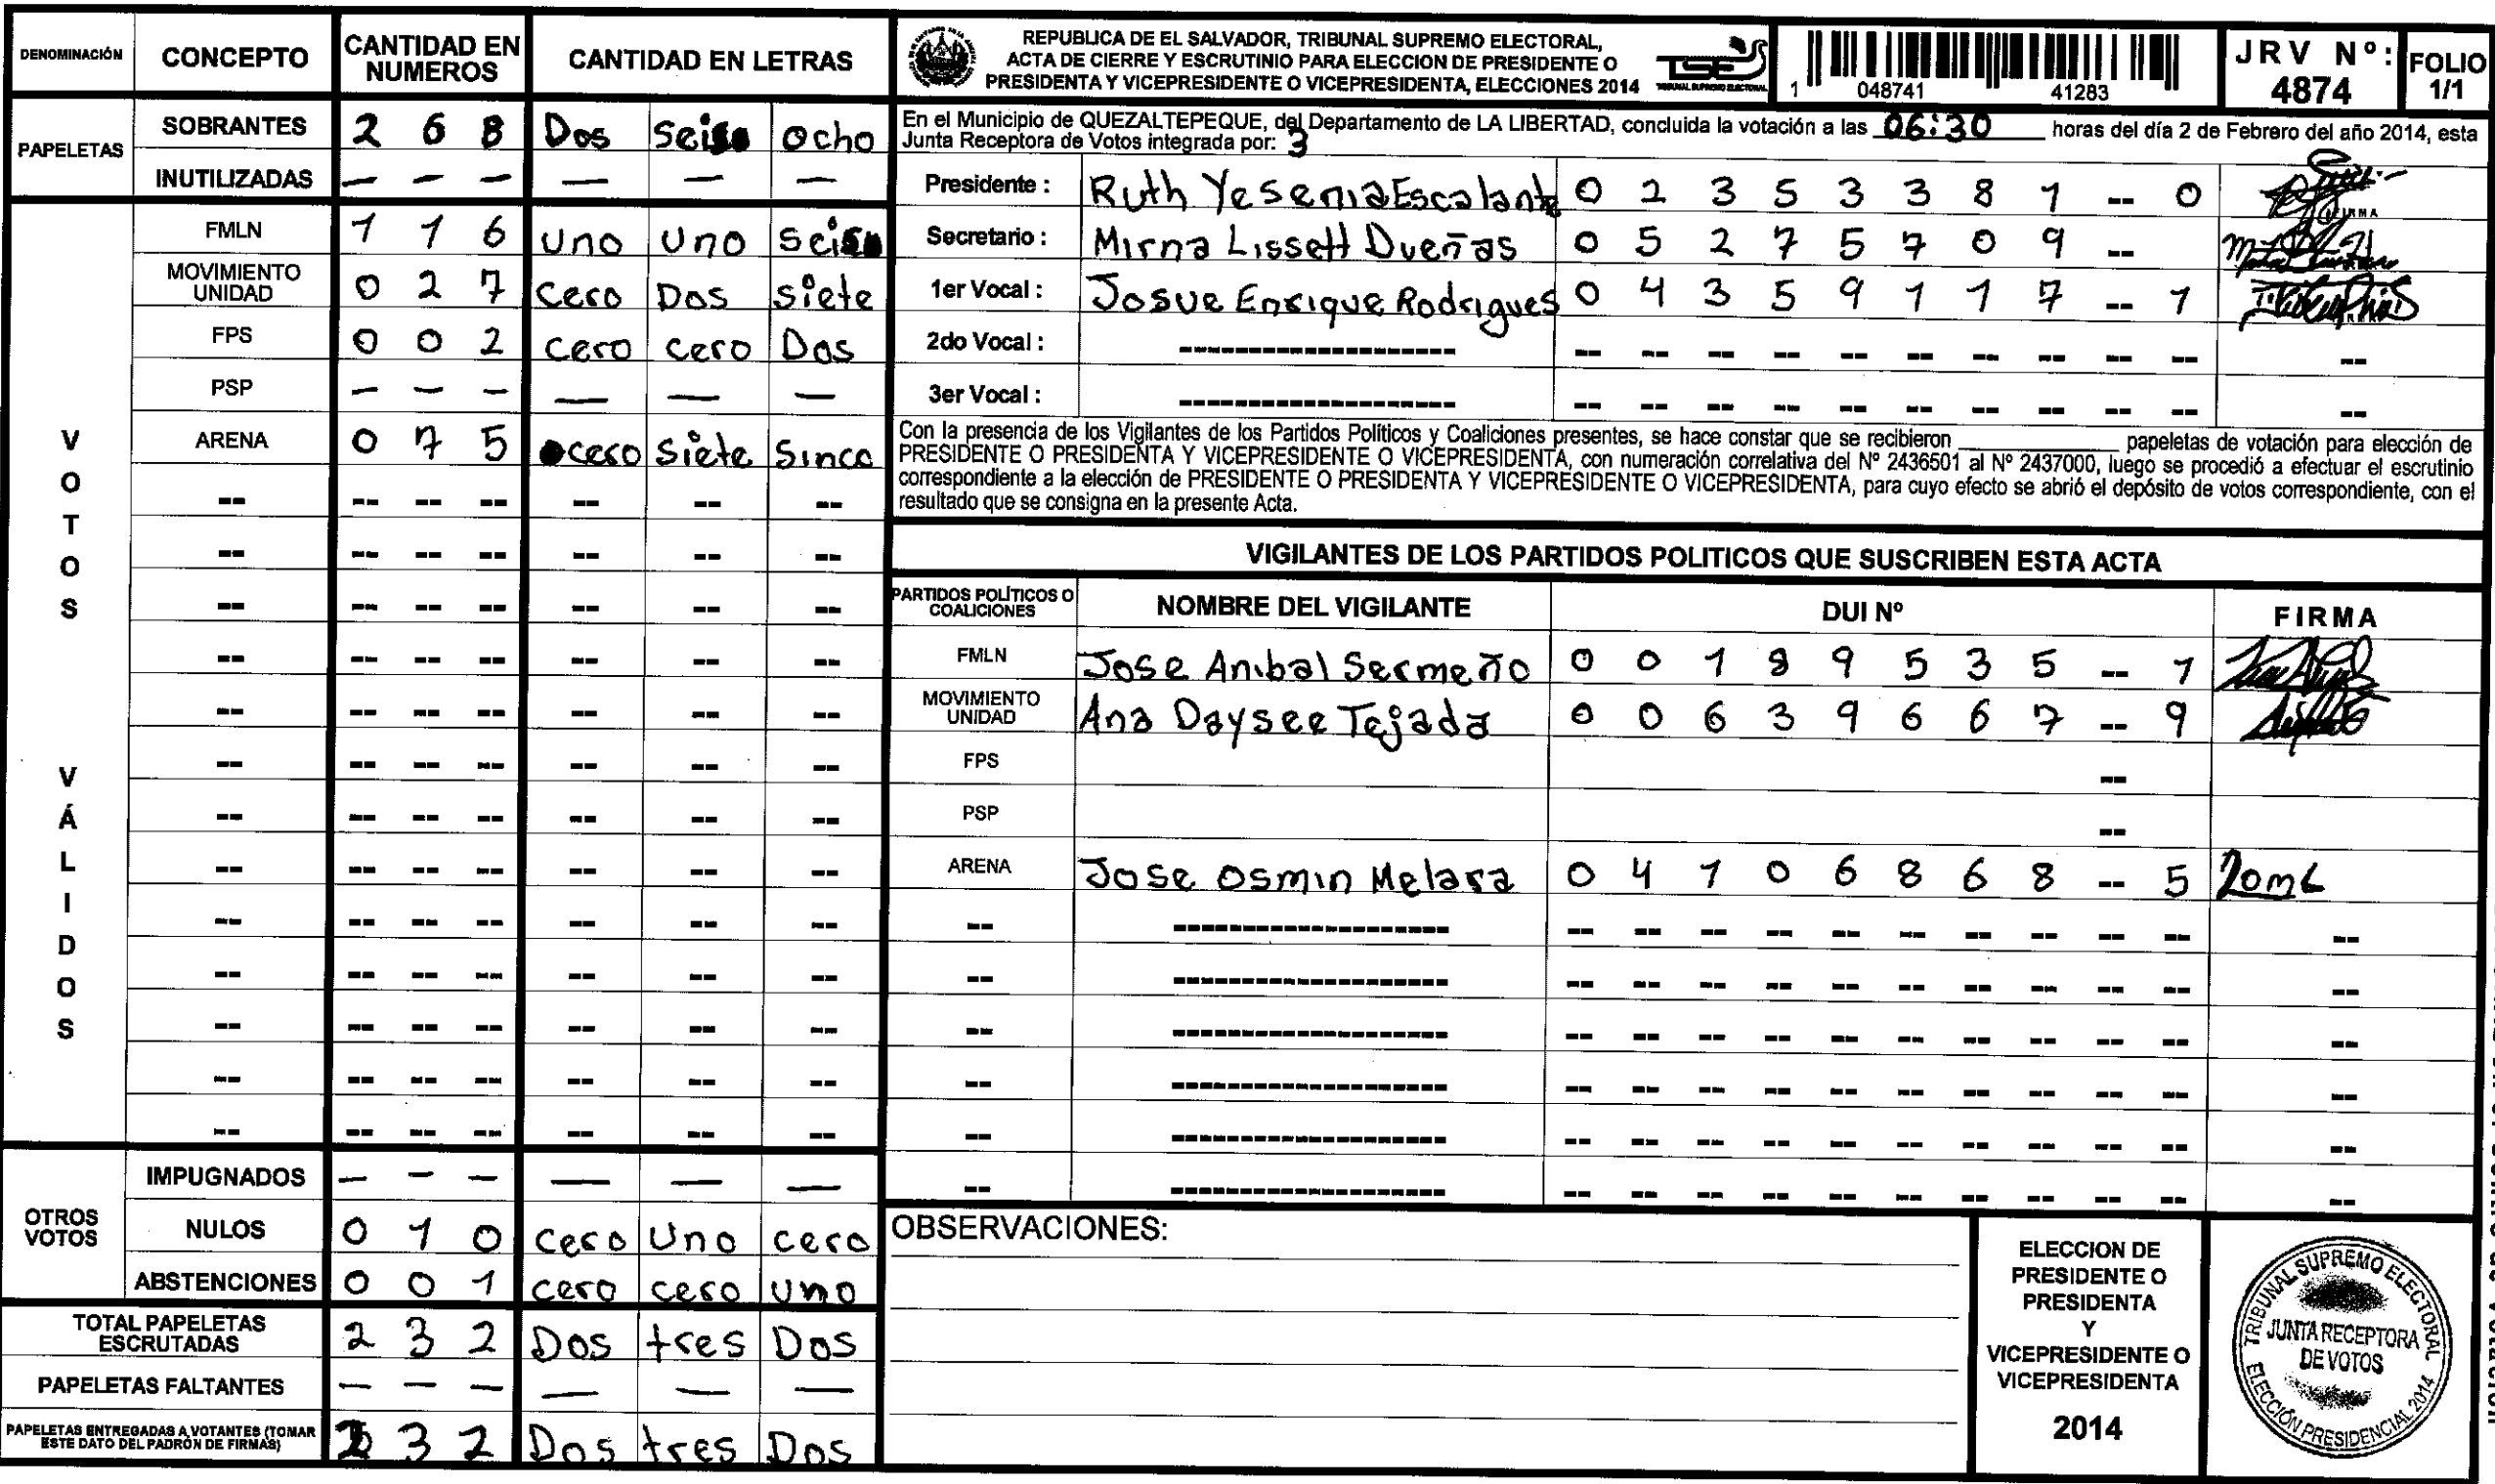 DENOMINACIÓN CONCEPTO CANTIDAD EN NUMEROS CANTIDAD EN LETRAS
PAPELETAS
SOBRANTES 2 6 8 Dos Seis ocho
INUTILIZADAS — — — — — —
VOTOS VÁLIDOS
FMLN 1 1 6 uno uno seis
MOVIMIENTO UNIDAD 0 2 7 cero Dos siete
FPS 0 0 2 cero cero Dos
PSP — — — — — —
ARENA 0 7 5 cero siete Sinco
OTROS VOTOS
IMPUGNADOS — — — — — —
NULOS 0 1 0 cero Uno cero
ABSTENCIONES 0 0 1 cero cero uno
TOTAL PAPELETAS ESCRUTADAS 2 3 2 Dos tres Dos
PAPELETAS FALTANTES — — — — — —
PAPELETAS ENTREGADAS A VOTANTES (TOMAR ESTE DATO DEL PADRÓN DE FIRMAS) 2 3 2 Dos tres Dos
REPUBLICA DE EL SALVADOR, TRIBUNAL SUPREMO ELECTORAL,
ACTA DE CIERRE Y ESCRUTINIO PARA ELECCION DE PRESIDENTE O
PRESIDENTA Y VICEPRESIDENTE O VICEPRESIDENTA, ELECCIONES 2014
TSE
TRIBUNAL SUPREMO ELECTORAL
1 048741 41283
JRV Nº: 4874
FOLIO 1/1
En el Municipio de QUEZALTEPEQUE, del Departamento de LA LIBERTAD, concluida la votación a las 06:30 horas del día 2 de Febrero del año 2014, esta
Junta Receptora de Votos integrada por: 3
Presidente : Ruth Yesenia Escalante 0 2 3 5 3 3 8 1 -- 0
FIRMA
Secretario : Mirna Lissett Dueñas 0 5 2 7 5 7 0 9 --
1er Vocal : Josue Enrique Rodrigues 0 4 3 5 9 1 1 7 -- 1
2do Vocal :
3er Vocal :
Con la presencia de los Vigilantes de los Partidos Políticos y Coaliciones presentes, se hace constar que se recibieron ________ papeletas de votación para elección de
PRESIDENTE O PRESIDENTA Y VICEPRESIDENTE O VICEPRESIDENTA, con numeración correlativa del Nº 2436501 al Nº 2437000, luego se procedió a efectuar el escrutinio
correspondiente a la elección de PRESIDENTE O PRESIDENTA Y VICEPRESIDENTE O VICEPRESIDENTA, para cuyo efecto se abrió el depósito de votos correspondiente, con el
resultado que se consigna en la presente Acta.
VIGILANTES DE LOS PARTIDOS POLITICOS QUE SUSCRIBEN ESTA ACTA
PARTIDOS POLÍTICOS O COALICIONES NOMBRE DEL VIGILANTE DUI Nº FIRMA
FMLN Jose Anibal Sermeño 0 0 1 8 9 5 3 5 -- 1
MOVIMIENTO UNIDAD Ana Daysee Tejada 0 0 6 3 9 6 6 7 -- 9
FPS --
PSP --
ARENA Jose Osmin Melara 0 4 1 0 6 8 6 8 -- 5
OBSERVACIONES:
ELECCION DE
PRESIDENTE O
PRESIDENTA
Y
VICEPRESIDENTE O
VICEPRESIDENTA
2014
TRIBUNAL SUPREMO ELECTORAL
JUNTA RECEPTORA
DE VOTOS
ELECCIÓN PRESIDENCIAL 2014